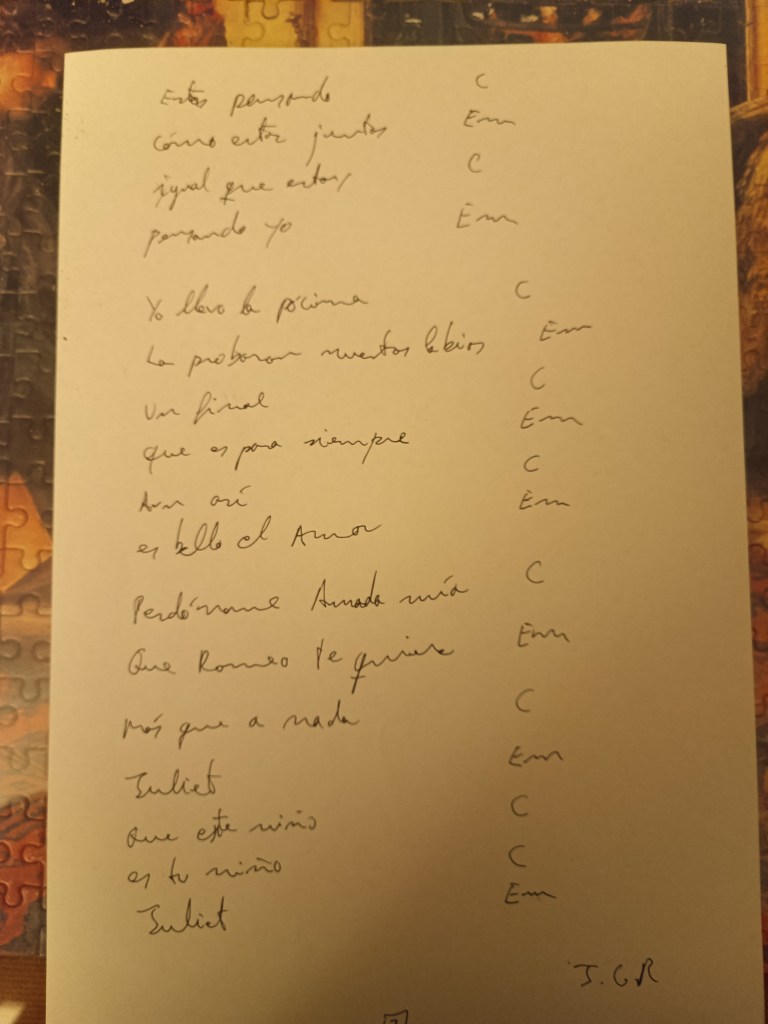 Estás pensando C
Cómo estar juntos Em
igual que estoy C
pensando yo Em
Yo llevo la pócima C
La probaron nuestros labios Em
Un final C
que es para siempre Em
Aun así C
es bello el Amor Em
Perdóname Amada mía C
Que Romeo te quiere Em
Más que a nada C
Juliet Em
Que este niño C
es tu niño C
Juliet Em
J. G R